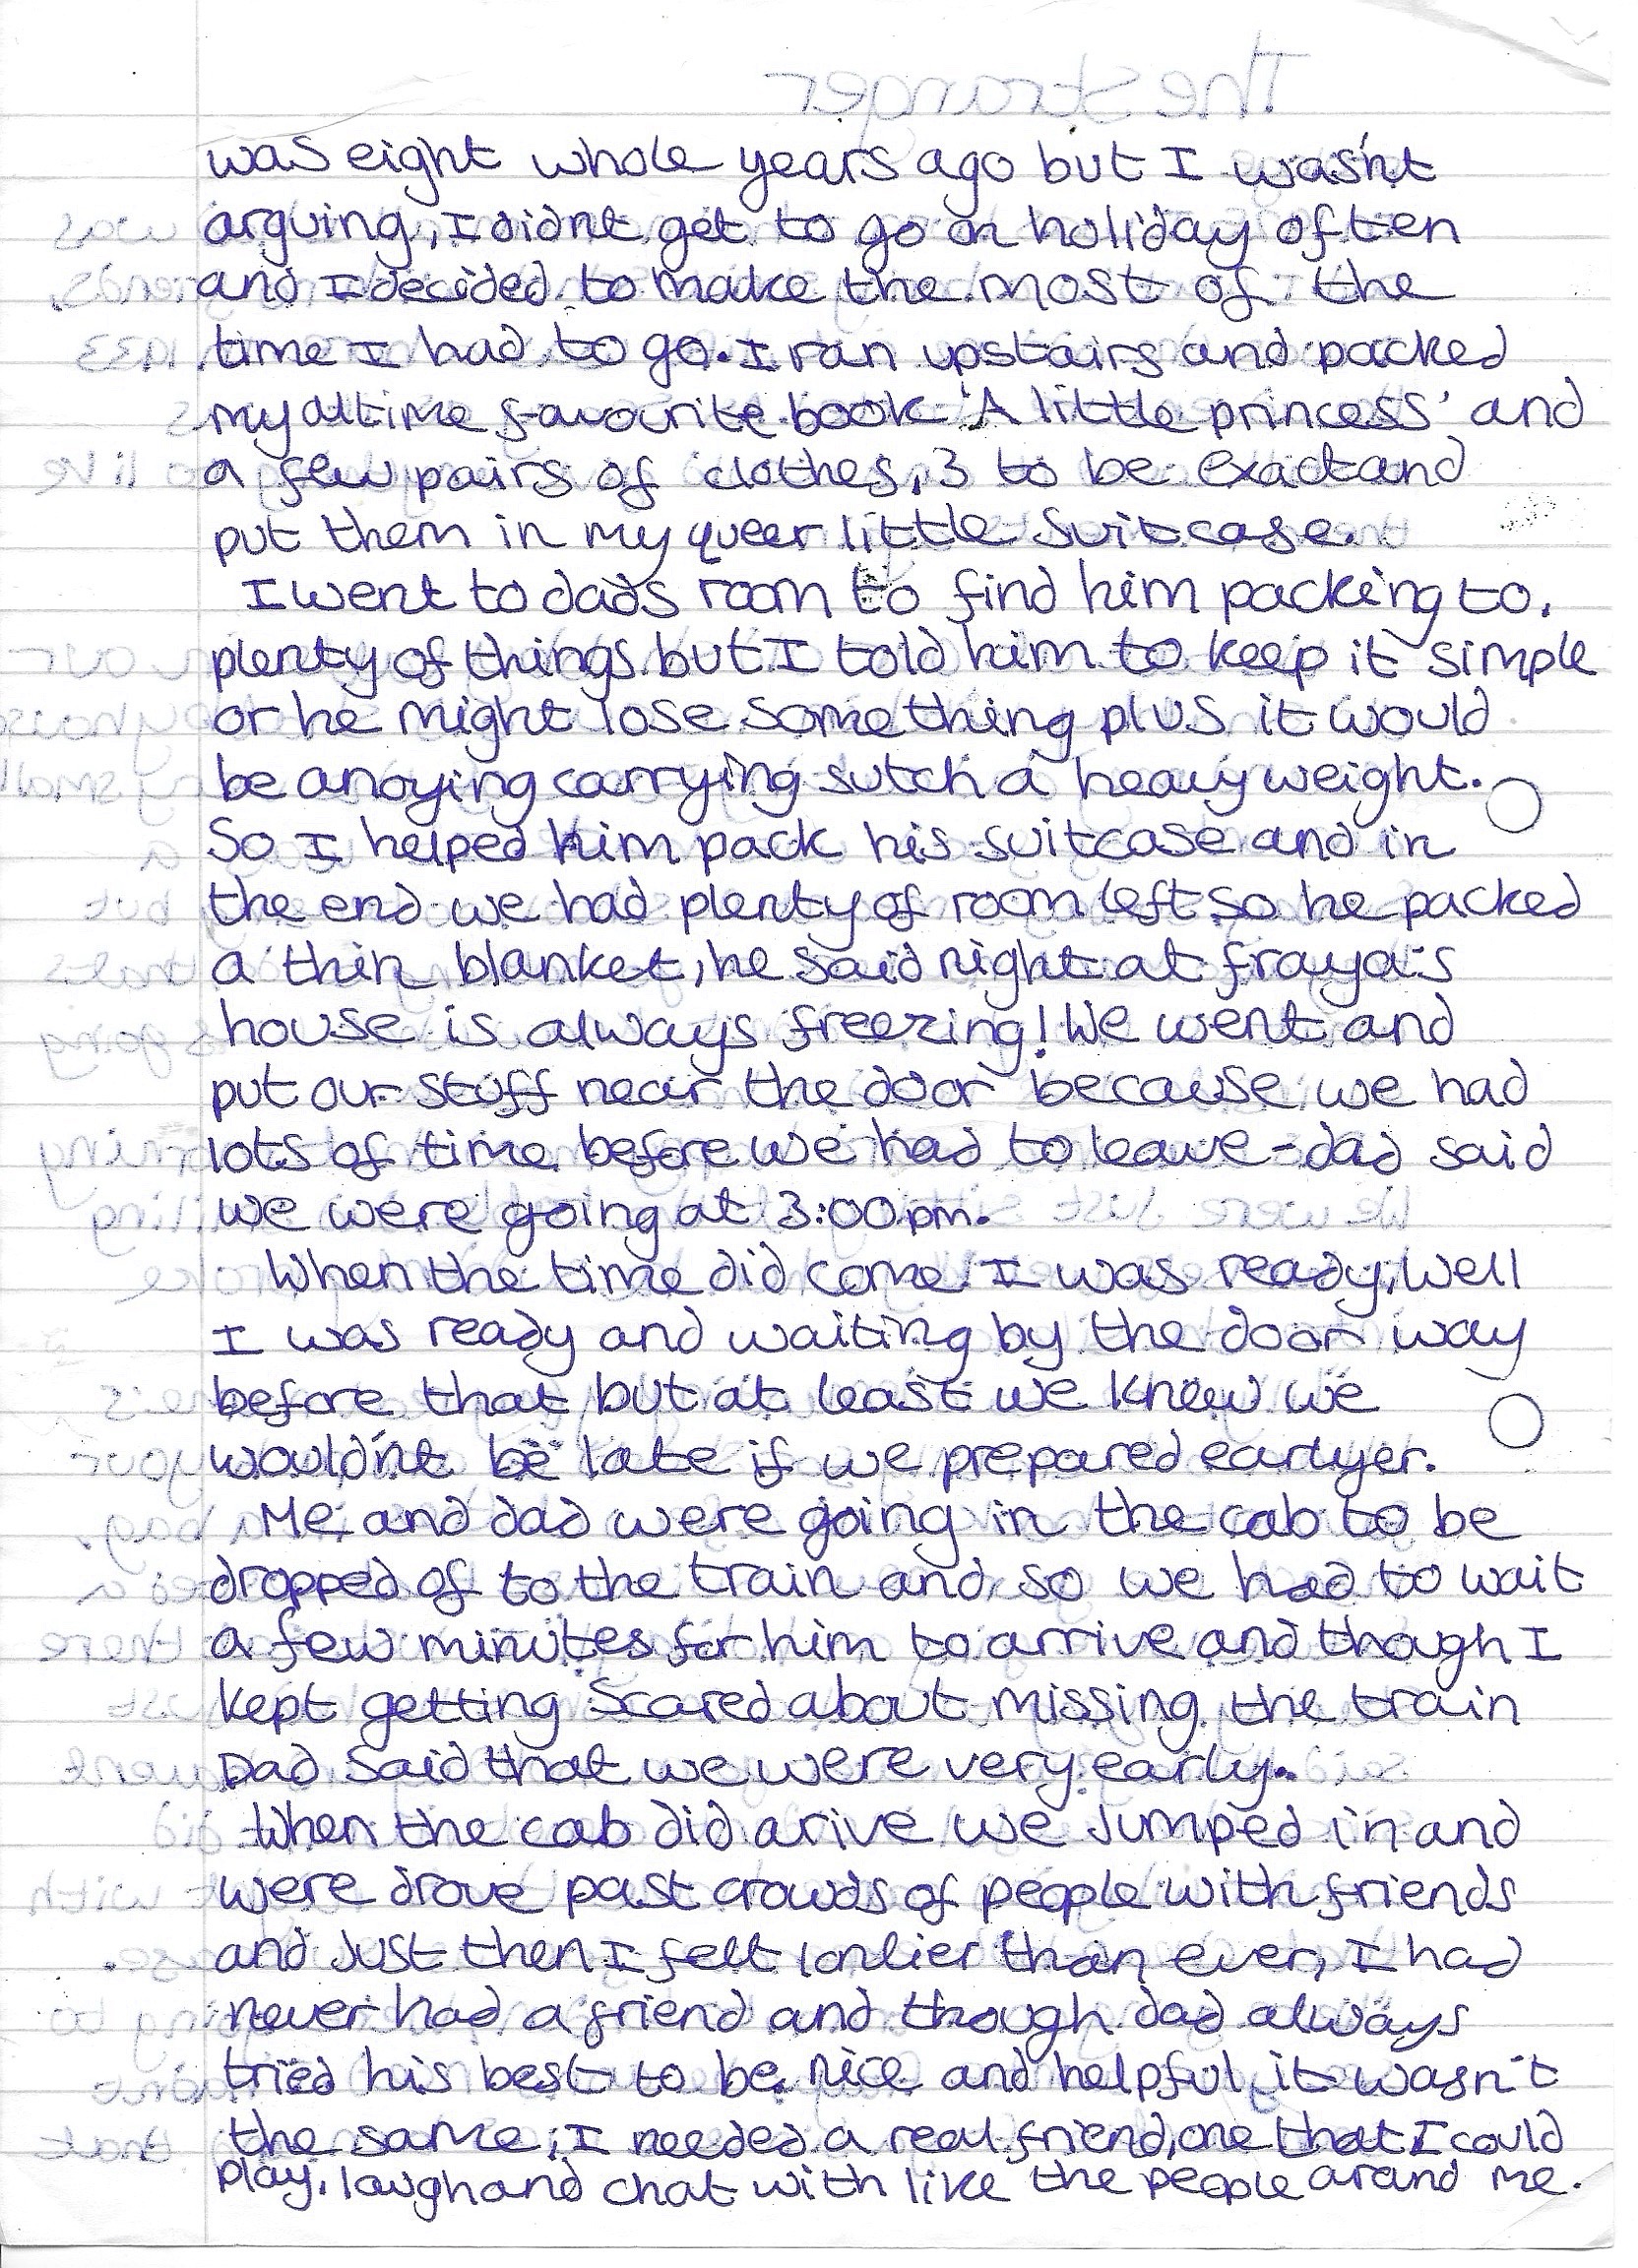 The Stranger
was eight whole years ago but I wasn't
arguing, I didnt get to go on holiday often
and I decided to make the most of the
time I had to go. I ran upstairs and packed
my alltime favourite book 'A little princess' and
a few pairs of clothes, 3 to be exact and
put them in my queer little suitcase.
I went to dads room to find him packing to,
plenty of things but I told him to keep it simple
or he might lose something plus it would
be anoying carrying sutch a heavy weight.
So I helped him pack his suitcase and in
the end we had plenty of room left so he packed
a thin blanket, he said night at fraya's
house is always freezing! We went and
put our stuff near the door because we had
lots of time before we had to leave - dad said
we were going at 3:00pm.
When the time did come I was ready, well
I was ready and waiting by the door way
before that but at least we knew we
would'nt be late if we prepared earlyer.
Me and dad were going in the cab to be
dropped of to the train and so we had to wait
a few minutes for him to arrive and though I
kept getting scared about missing the train
Dad said that we were very early.
When the cab did arive we Jumped in and
were drove past crowds of people with friends
and Just then I felt lonlier than ever, I had
never had a friend and though dad always
tried his best to be nice and helpful it wasn't
the same, I needed a real friend, one that I could
play, laugh and chat with like the people arand me.